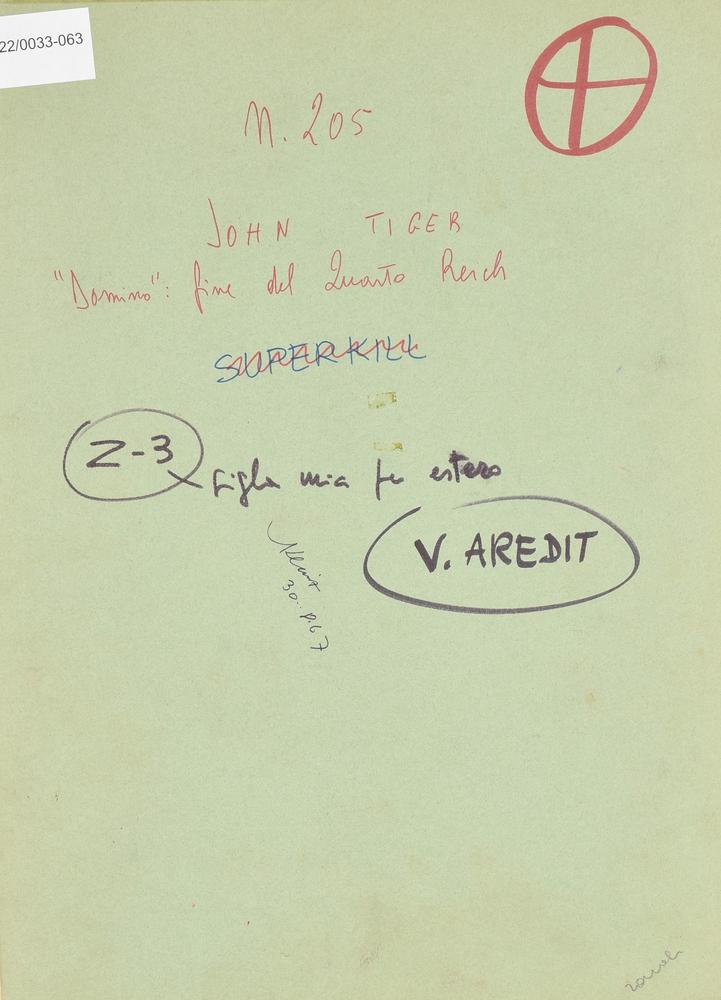 22/0033-063
N. 205
JOHN TIGER
"Domino": fine del Quarto Reich
SUPERKILL
Z-3 sigla mia per estero
V. AREDIT
30.